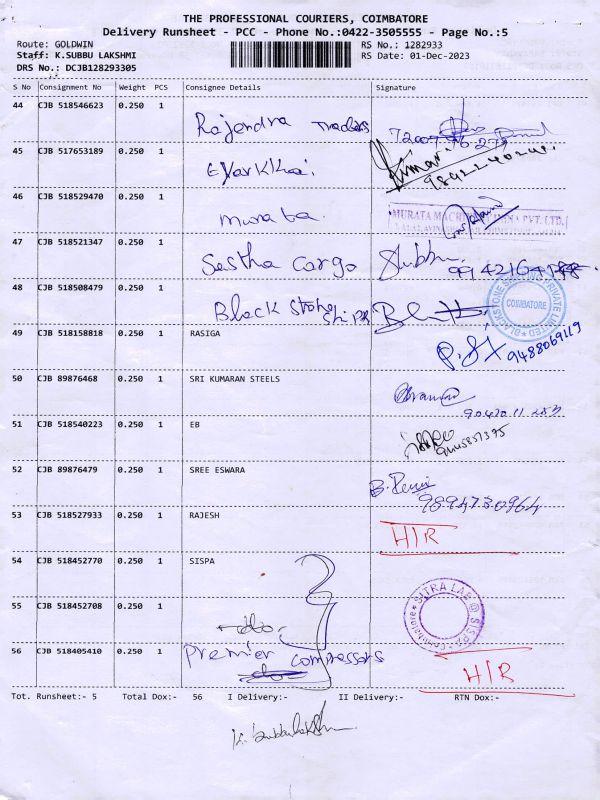 THE PROFESSIONAL COURIERS, COIMBATORE
Delivery Runsheet - PCC - Phone No.:0422-3505555 - Page No.:5
Route: GOLDWIN
RS No.: 1282933
Staff: K.SUBBU LAKSHMI
RS Date: 01-Dec-2023
DRS No.: DCJB128293305
S No Consignment No Weight PCS Consignee Details Signature
44 CJB 518546623 0.250 1 Rajendra Traders
45 CJB 517653189 0.250 1 Kumar.
46 CJB 518529470 0.250 1 murata.
47 CJB 518521347 0.250 1 Sastha Cargo Subbu
48 CJB 518508479 0.250 1 Black Stone COIMBATORE
49 CJB 518158818 0.250 1 RASIGA 9488069119
50 CJB 89876468 0.250 1 SRI KUMARAN STEELS
51 CJB 518540223 0.250 1 EB
52 CJB 89876479 0.250 1 SREE ESWARA 9894730964
53 CJB 518527933 0.250 1 RAJESH H/R
54 CJB 518452770 0.250 1 SISPA SITRA LAB @ SISPA Coimbatore
55 CJB 518452708 0.250 1 -do-
56 CJB 518405410 0.250 1 Premier Compressors H/R
Tot. Runsheet:- 5 Total Dox:- 56 I Delivery:- II Delivery:- RTN Dox:-
K. Subbulakshmi